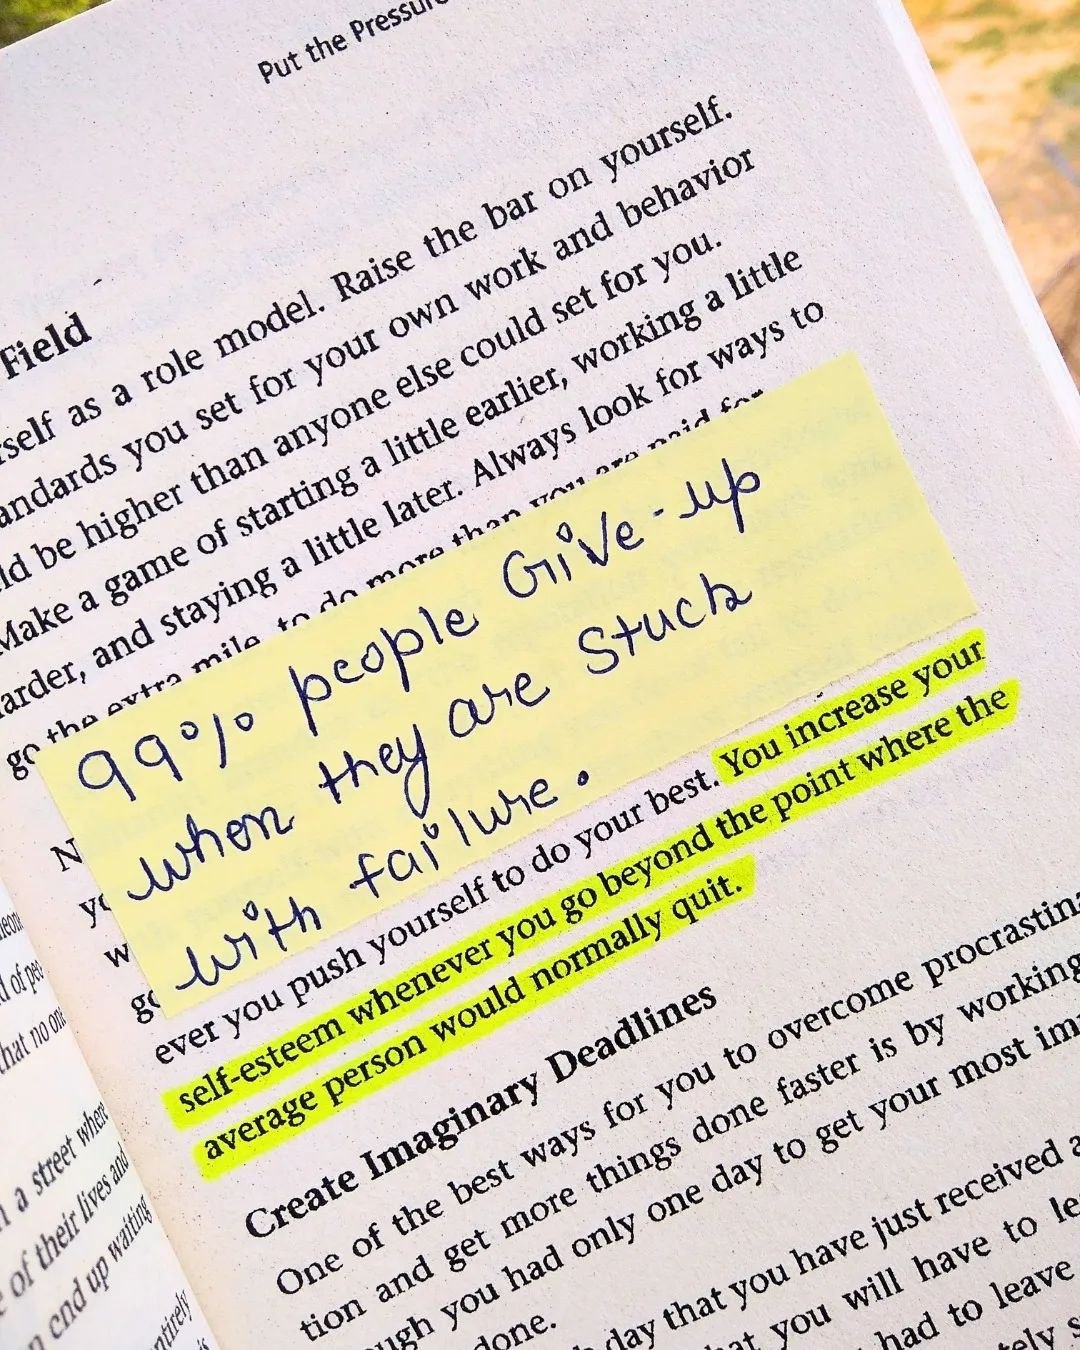 Put the Pressure
Field
as a role model. Raise the bar on yourself.
you set for your own work and behavior
be higher than anyone else could set for you.
Make a game of starting a little earlier, working a little
and staying a little later. Always look for ways to
go the extra mile, to do more than you are paid for
99% people Give-up
when they are Stuck
with failure.
ever you push yourself to do your best. You increase your
self-esteem whenever you go beyond the point where the
average person would normally quit.
Create Imaginary Deadlines
One of the best ways for you to overcome procrastina
tion and get more things done faster is by working
you had only one day to get your most
done.
day that you have just received
you will have to
had to leave
of
that no one
a street where
of their lives and
end up waiting